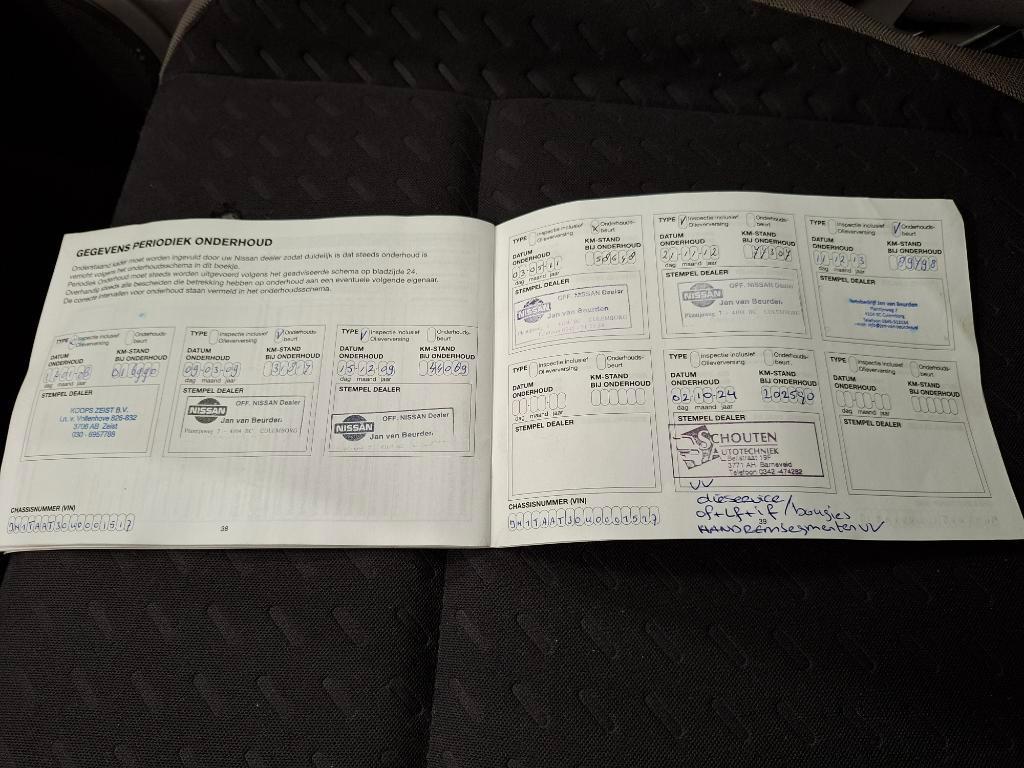 GEGEVENS PERIODIEK ONDERHOUD
Onderstaand kader moet worden ingevuld door uw Nissan dealer zodat duidelijk is dat steeds onderhoud is
verricht volgens het onderhoudsschema in dit boekje.
Periodiek onderhoud moet steeds worden uitgevoerd volgens het geadviseerde schema op bladzijde 24.
Overhandig steeds alle bescheiden die betrekking hebben op onderhoud aan een eventuele volgende eigenaar.
De correcte intervallen voor onderhoud staan vermeld in het onderhoudsschema.
TYPE Inspectie inclusief Olieverversing Onderhouds-
DATUM ONDERHOUD KM-STAND BIJ ONDERHOUD
dag maand jaar
STEMPEL DEALER
KOOPS ZEIST B.V.
Ln. v. Vollenhove 826-832
3706 AB Zeist
030 - 6957788
TYPE Inspectie inclusief Olieverversing Onderhouds-beurt
DATUM ONDERHOUD KM-STAND BIJ ONDERHOUD
09-03-09
dag maand jaar
STEMPEL DEALER
OFF. NISSAN Dealer
NISSAN
Jan van Beurden.
Plantijnweg 7 - 4104 BC CULEMBORG
TYPE Inspectie inclusief Olieverversing Onderhouds-beurt
DATUM ONDERHOUD KM-STAND BIJ ONDERHOUD
15-12-09 44069
dag maand jaar
STEMPEL DEALER
OFF. NISSAN Dealer
NISSAN
Jan van Beurden.
CHASSISNUMMER (VIN)
38
TYPE Inspectie inclusief Olieverversing Onderhouds-beurt
DATUM ONDERHOUD KM-STAND BIJ ONDERHOUD
03-05-11 58648
dag maand jaar
STEMPEL DEALER
OFF. NISSAN Dealer
NISSAN
Jan van Beurden.
TYPE Inspectie inclusief Olieverversing Onderhouds-beurt
DATUM ONDERHOUD KM-STAND BIJ ONDERHOUD
77307
dag maand jaar
STEMPEL DEALER
OFF. NISSAN Dealer
NISSAN
Jan van Beurden.
Plantijnweg 7 - 4104 BC CULEMBORG
TYPE Inspectie inclusief Olieverversing Onderhouds-beurt
DATUM ONDERHOUD KM-STAND BIJ ONDERHOUD
11-12-13 89798
dag maand jaar
STEMPEL DEALER
Autobedrijf Jan van Beurden
Plantijnweg 7
4104 BC Culemborg
TYPE Inspectie inclusief Olieverversing Onderhouds-beurt
DATUM ONDERHOUD KM-STAND BIJ ONDERHOUD
dag maand jaar
STEMPEL DEALER
TYPE Inspectie inclusief Olieverversing Onderhouds-beurt
DATUM ONDERHOUD KM-STAND BIJ ONDERHOUD
02-10-24 202580
dag maand jaar
STEMPEL DEALER
SCHOUTEN
AUTOTECHNIEK
3771 AH Barneveld
Telefoon 0342 -474282
TYPE Inspectie inclusief Olieverversing Onderhouds-beurt
DATUM ONDERHOUD KM-STAND BIJ ONDERHOUD
dag maand jaar
STEMPEL DEALER
VV
of+lf+if/bougies
HANDREMsegmenten VV
CHASSISNUMMER (VIN)
39